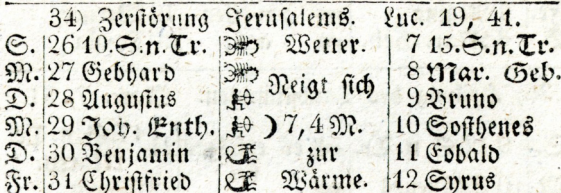 34) Zerstörung Jerusalems. Luc. 19, 41.
S. 26 10.S.n.Tr. Wetter. 7 15.S.n.Tr.
M. 27 Gebhard 8 Mar. Geb.
D. 28 Augustus Neigt sich 9 Bruno
M. 29 Joh. Enth. ☽ 7, 4 M. 10 Sosthenes
D. 30 Benjamin zur 11 Eobald
Fr. 31 Christfried Wärme. 12 Syrus